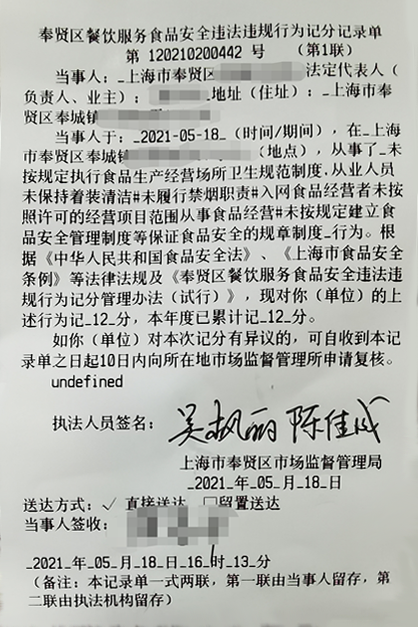 奉贤区餐饮服务食品安全违法违规行为记分记录单
第 120210200442 号 （第1联）
当事人：_上海市奉贤区 法定代表人（
负责人、业主）： 地址（住址）：_上海市奉
贤区奉城镇
当事人于：_2021-05-18_（时间/期间），在_上
海市奉贤区奉城镇 （地点），从事了_未
按规定执行食品生产经营场所卫生规范制度,从业人员
未保持着装清洁#未履行禁烟职责#入网食品经营者未按
照许可的经营项目范围从事食品经营#未按规定建立食
品安全管理制度等保证食品安全的规章制度_行为。根
据《中华人民共和国食品安全法》、《上海市食品安全
条例》等法律法规及《奉贤区餐饮服务食品安全违法违
规行为记分管理办法（试行）》，现对你（单位）的上
述行为记_12_分，本年度已累计记_12_分。
如你（单位）对本次记分有异议的，可自收到本记
录单之日起10日内向所在地市场监督管理所申请复核。
undefined
执法人员签名： 吴枫丽 陈佳成
上海市奉贤区市场监督管理局
_2021_年_05_月_18_日
送达方式：√ 直接送达 □留置送达
当事人签收：
_2021_年_05_月_18_日_16_时_13_分
（备注：本记录单一式两联，第一联由当事人留存，第
二联由执法机构留存）